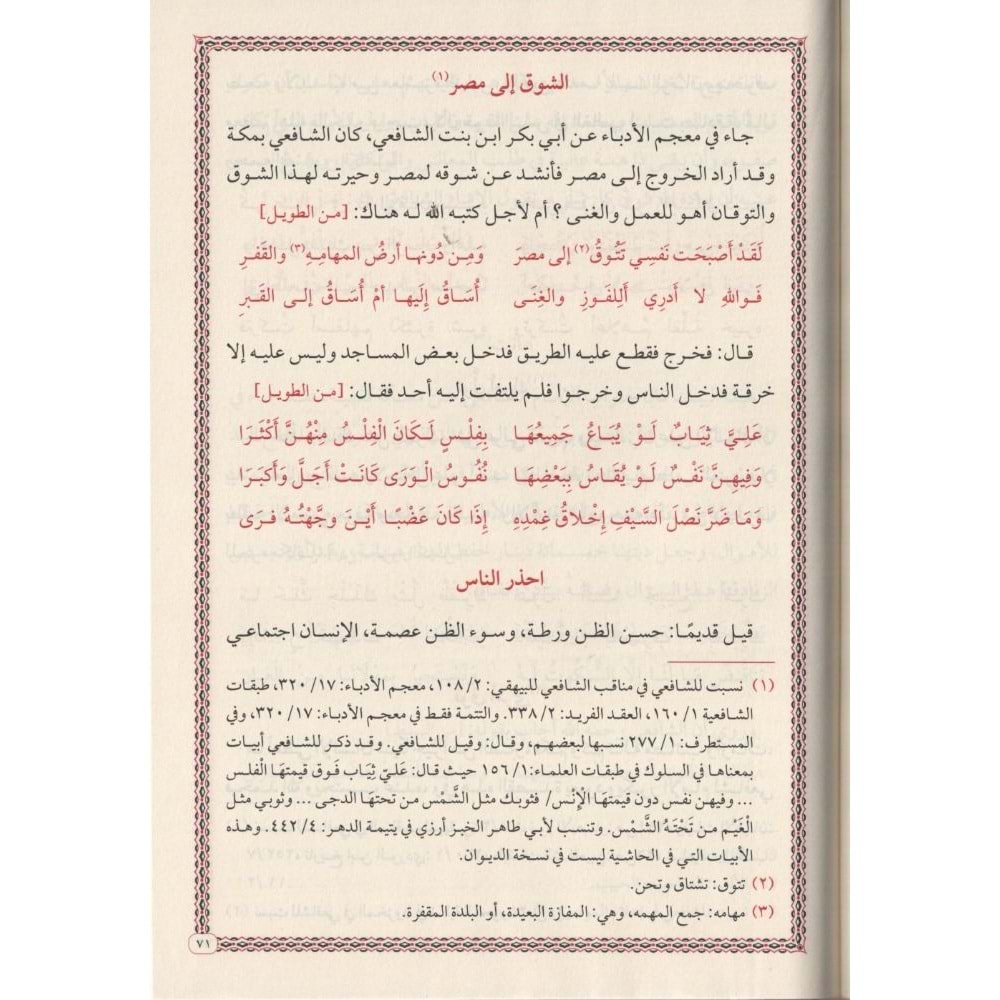 الشوق إلى مصر(١)
جاء في معجم الأدباء عن أبي بكر ابن بنت الشافعي، كان الشافعي بمكة
وقد أراد الخروج إلى مصر فأنشد عن شوقه لمصر وحيرته لهذا الشوق
والتوقان أهو للعمل والغنى؟ أم لأجل كتبه الله له هناك: [من الطويل]
لَقَدْ أَصْبَحَت نَفسِي تَتُوقُ(٢) إلى مصرَ وَمِـن دُونهـا أرضُ المهامـهِ(٣) والقَفرِ
فَـواللهِ لا أَدرِي أَلِلفَـوزِ والغِنـى أُسَاق إلَيهـا أمْ أُسَاق إلـى القَبـرِ
قـال: فخـرج فقطـع عليه الطريـق فدخـل بعـض المسـاجد وليـس عليـه إلا
خرقـة فدخـل الناس وخرجـوا فلـم يلتفـت إليـه أحـد فقـال: [مـن الطويـل]
عَلـيَّ ثِيَـابٌ لَـوْ يُبَـاعُ جَمِيعُهَـا بِفِلْـسٍ لَـكَانَ الْفِلْـسُ مِنْهُـنَّ أَكْثَـرَا
وَفِيهِـنَّ نَفْـسٌ لَـوْ يُقَـاسُ بِبَعْضِهَـا نُفُـوسُ الْـوَرَى كَانَـتْ أَجَـلَّ وَأَكْبَـرَا
وَمَا ضَرَّ نَصْلَ السَّيْفِ إِخْلَاقُ غِمْدِهِ إِذَا كَانَ عَضْبًـا أَيْـنَ وَجَّهْتُـهُ فَـرَى
احذر الناس
قيـل قديمًـا: حسـن الظـن ورطـة، وسـوء الظـن عصمـة، الإنسـان اجتماعـي
(١) نسبت للشافعي في مناقب الشافعي للبيهقي: ٢/ ١٠٨، معجم الأدباء: ١٧/ ٣٢٠، طبقات
الشافعية ١/ ١٦٠، العقد الفريد: ٢/ ٣٣٨. والتتمة فقط في معجم الأدباء: ١٧/ ٣٢٠، وفي
المستطرف: ١/ ٢٧٧ نسبها لبعضهم، وقال: وقيل للشافعي. وقد ذكر للشافعي أبيات
بمعناها في السلوك في طبقات العلماء: ١/ ١٥٦ حيث قال: عَليّ ثِيَاب فَوق قيمتهَا الْفلس
... وفيهن نفس دون قيمتهَا الْإِنْس/ فثوبك مثل الشَّمْس من تحتهَا الدجى ... وثوبي مثل
الْغَيْم من تَحْتَهُ الشَّمْس. وتنسب لأبي طاهر الخبز أرزي في يتيمة الدهر: ٤/ ٤٤٢. وهذه
الأبيات التي في الحاشية ليست في نسخة الديوان.
(٢) تتوق: تشتاق وتحن.
(٣) مهامه: جمع المهمه، وهي: المفازة البعيدة، أو البلدة المقفرة.
٧١